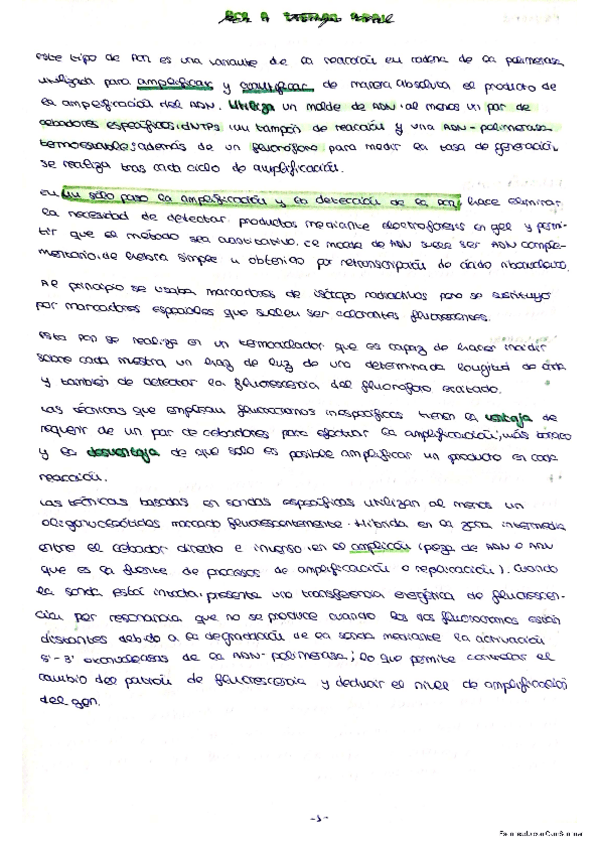 PCR A TIEMPO REAL
este tipo de PCR es una variante de la reacción en cadena de la polimerasa
utilizada para amplificar y cuantificar de manera absoluta el producto de
la amplificación del ADN. Utiliza un molde de ADN, al menos un par de
cebadores específicos, dNTPs, un tampón de reacción y una ADN-polimerasa
termoestable; además de un fluoróforo para medir la tasa de generación
se realiza tras cada ciclo de amplificación.
En un sólo paso la amplificación y la detección de la PCR, hace eliminar
la necesidad de detectar productos mediante electroforesis en gel y permi-
tir que el método sea cuantitativo. El molde de ADN suele ser ADN comple-
mentario, de hebra simple u obtenido por retranscripatín de ácido ribonucleico.
Al principio se usaba marcadores de isótopo radiactivos pero se sustituyo
por marcadores especiales que suelen ser colorantes fluorescentes.
Esta PCR se realiza en un termociclador que es capaz de hacer incidir
sobre cada muestra un haz de luz de una determinada longitud de onda
y también de detectar la fluorescencia del fluoróforo excitado.
Las técnicas que emplean fluorocromos inespecíficos tienen la ventaja de
requerir de un par de cebadores para efectuar la amplificación, más barato
y la desventaja de que sólo es posible amplificar un producto en cada
reacción.
Las técnicas basadas en sondas específicas utilizan al menos un
oligonucleótidos marcado fluorescentemente. Hibrida en la zona intermedia
entre el cebador directo e inverso, en el amplicón (pieza de ADN o ARN
que es la fuente de procesos de amplificación o replicación). Cuando
la sonda está intacta, presenta una transferencia energética de fluorescen-
cia por resonancia que no se produce cuando los dos fluorocromos están
distantes debido a la degradación de la sonda mediante la activación
5'-3' exonucleasas de la ADN-polimerasa; lo que permite controlar el
cambio del patrón de fluorescencia y deducir el nivel de amplificación
del gen.